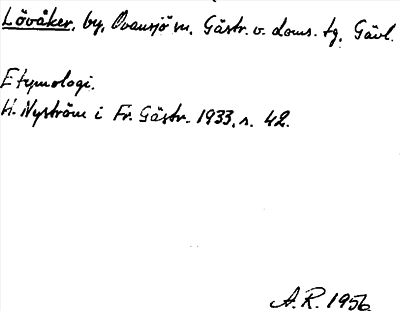 Lövåker, by, Ovansjö sn. Gästr. v. doms. tg. Gävl.
Etymologi.
H. Nyström i Fr. Gästr. 1933, s. 42.
A. R. 1956